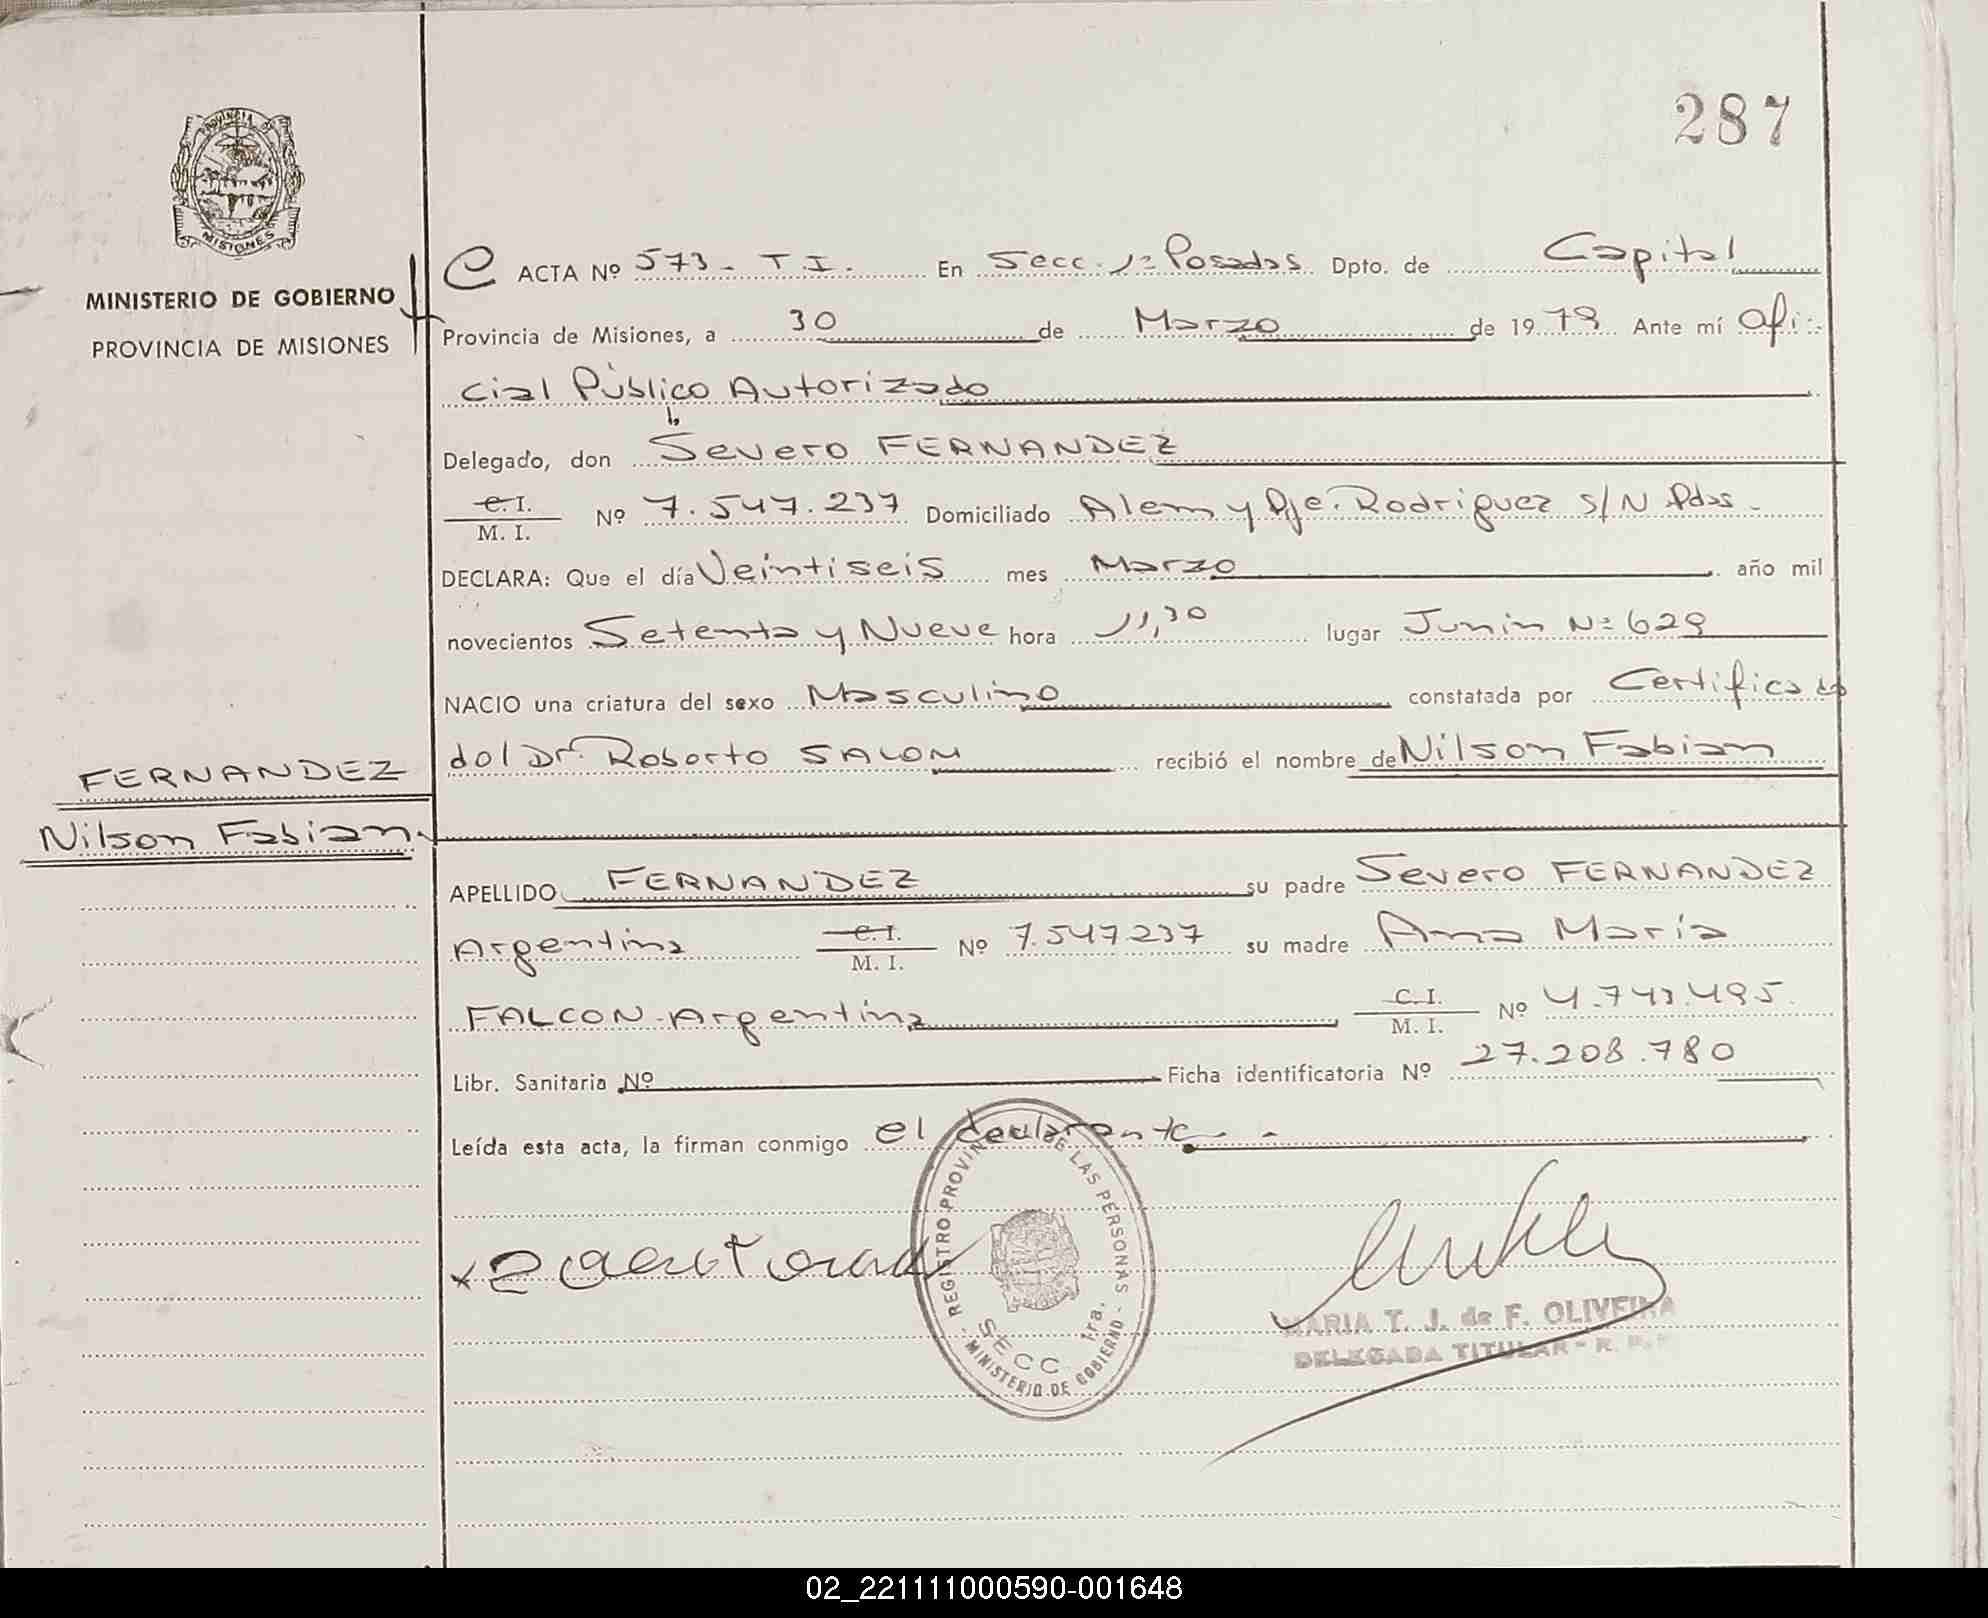 287
PROVINCIA DE
MISIONES
MINISTERIO DE GOBIERNO
PROVINCIA DE MISIONES
ACTA Nº 573 - T.I. En Secc. 1ª Posadas Dpto. de Capital
Provincia de Misiones, a 30 de Marzo de 1979 Ante mí Ofi-
cial Público Autorizado
Delegado, don Severo FERNANDEZ
C. I. / M. I. Nº 7.547.237 Domiciliado Alem y Pje. Rodriguez S/N Pdas.
DECLARA: Que el día Veintiseis mes Marzo año mil
novecientos Setenta y Nueve hora 11,30 lugar Junin Nº 629
NACIO una criatura del sexo Masculino constatada por Certificado
del Dr. Roberto SALOM recibió el nombre de Nilson Fabian
FERNANDEZ
Nilson Fabian
APELLIDO FERNANDEZ su padre Severo FERNANDEZ
Argentina C. I. / M. I. Nº 7.547.237 su madre Ana María
FALCON - Argentina C. I. / M. I. Nº 4.743.495.
Libr. Sanitaria Nº Ficha identificatoria Nº 27.208.780
Leída esta acta, la firman conmigo el declarante.-
REGISTRO PROVINCIAL DE LAS PERSONAS
SECC 1ra.
MINISTERIO DE GOBIERNO
MARIA T. J. de F. OLIVEIRA
DELEGADA TITULAR - R. P. P.
02_221111000590-001648